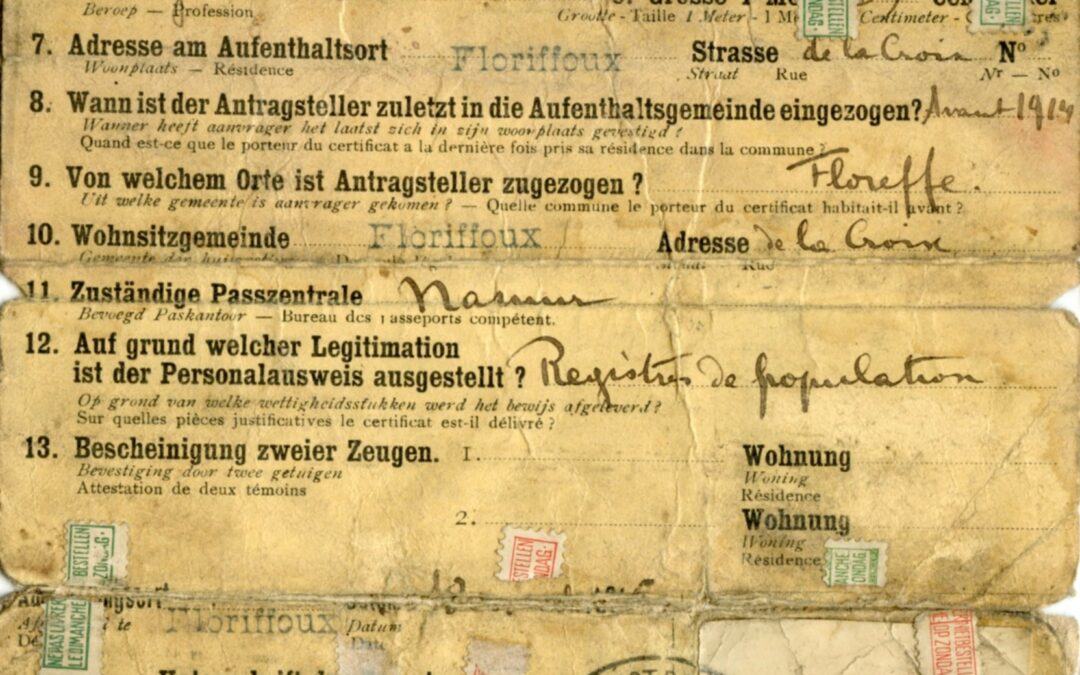 Beroep — Profession
Grootte - Taille 1 Meter - 1 M Centimeter -
7. Adresse am Aufenthaltsort Floriffoux Strasse de la Croix N°
Woonplaats — Résidence Straat Rue Nr — N°
8. Wann ist der Antragsteller zuletzt in die Aufenthaltsgemeinde eingezogen? Avant 1914
Wanner heeft aanvrager het laatst zich in zijn woonplaats gevestigd ?
Quand est-ce que le porteur du certificat a la dernière fois pris sa résidence dans la commune ?
9. Von welchem Orte ist Antragsteller zugezogen ? Floreffe.
Uit welke gemeente is aanvrager gekomen ? — Quelle commune le porteur du certificat habitait-il avant ?
10. Wohnsitzgemeinde Floriffoux Adresse de la Croix
Rue
11. Zuständige Passzentrale Namur
Bevoegd Paskantoor — Bureau des Passeports compétent.
12. Auf grund welcher Legitimation
ist der Personalausweis ausgestellt ? Registres de population
Op grond van welke wettigheidsstukken werd het bewijs afgeleverd ?
Sur quelles pièces justificatives le certificat est-il délivré ?
13. Bescheinigung zweier Zeugen. 1. Wohnung
Bevestiging door twee getuigen Woning
Attestation de deux témoins Résidence
2. Wohnung
Woning
Résidence
BESTELLEN
ZONDAG
NE PAS LIVRER
LE DIMANCHE
Floriffoux Datum